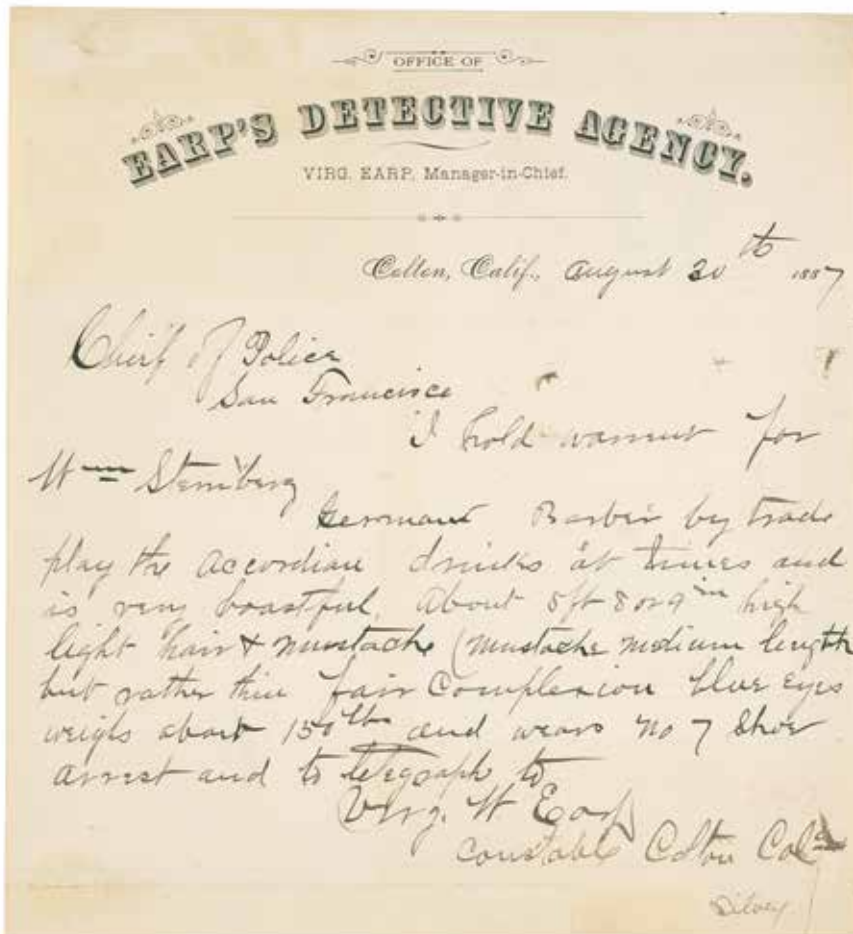 OFFICE OF
EARP'S DETECTIVE AGENCY.
VIRG. EARP, Manager-in-Chief.
Colton, Calif., August 20th 1887
Chief of Police
San Francisco
I hold warrent for
Wm Sternberg
German Barber by trade
play the accordian drinks at times and
is very boastful. About 5 ft 8 or 9 in high
light hair & mustache (mustache medium length
but rather thin fair Complexion blue eyes
weighs about 150 lbs and wears no 7 Shoe
arrest and to telegraph to
Virg. W Earp
Constable Colton Cal